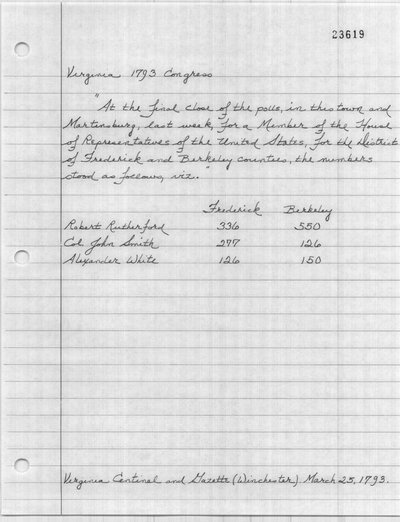 23619
Virginia 1793 Congress
"At the final close of the polls, in this town and
Martinsburg, last week, for a Member of the House
of Representatives of the United States, for the Districts
of Frederick and Berkeley counties, the numbers
stood as follows, viz."
Frederick Berkeley
Robert Rutherford 336 550
Col. John Smith 277 126
Alexander White 126 150
Virginia Centinel and Gazette (Winchester). March 25, 1793.